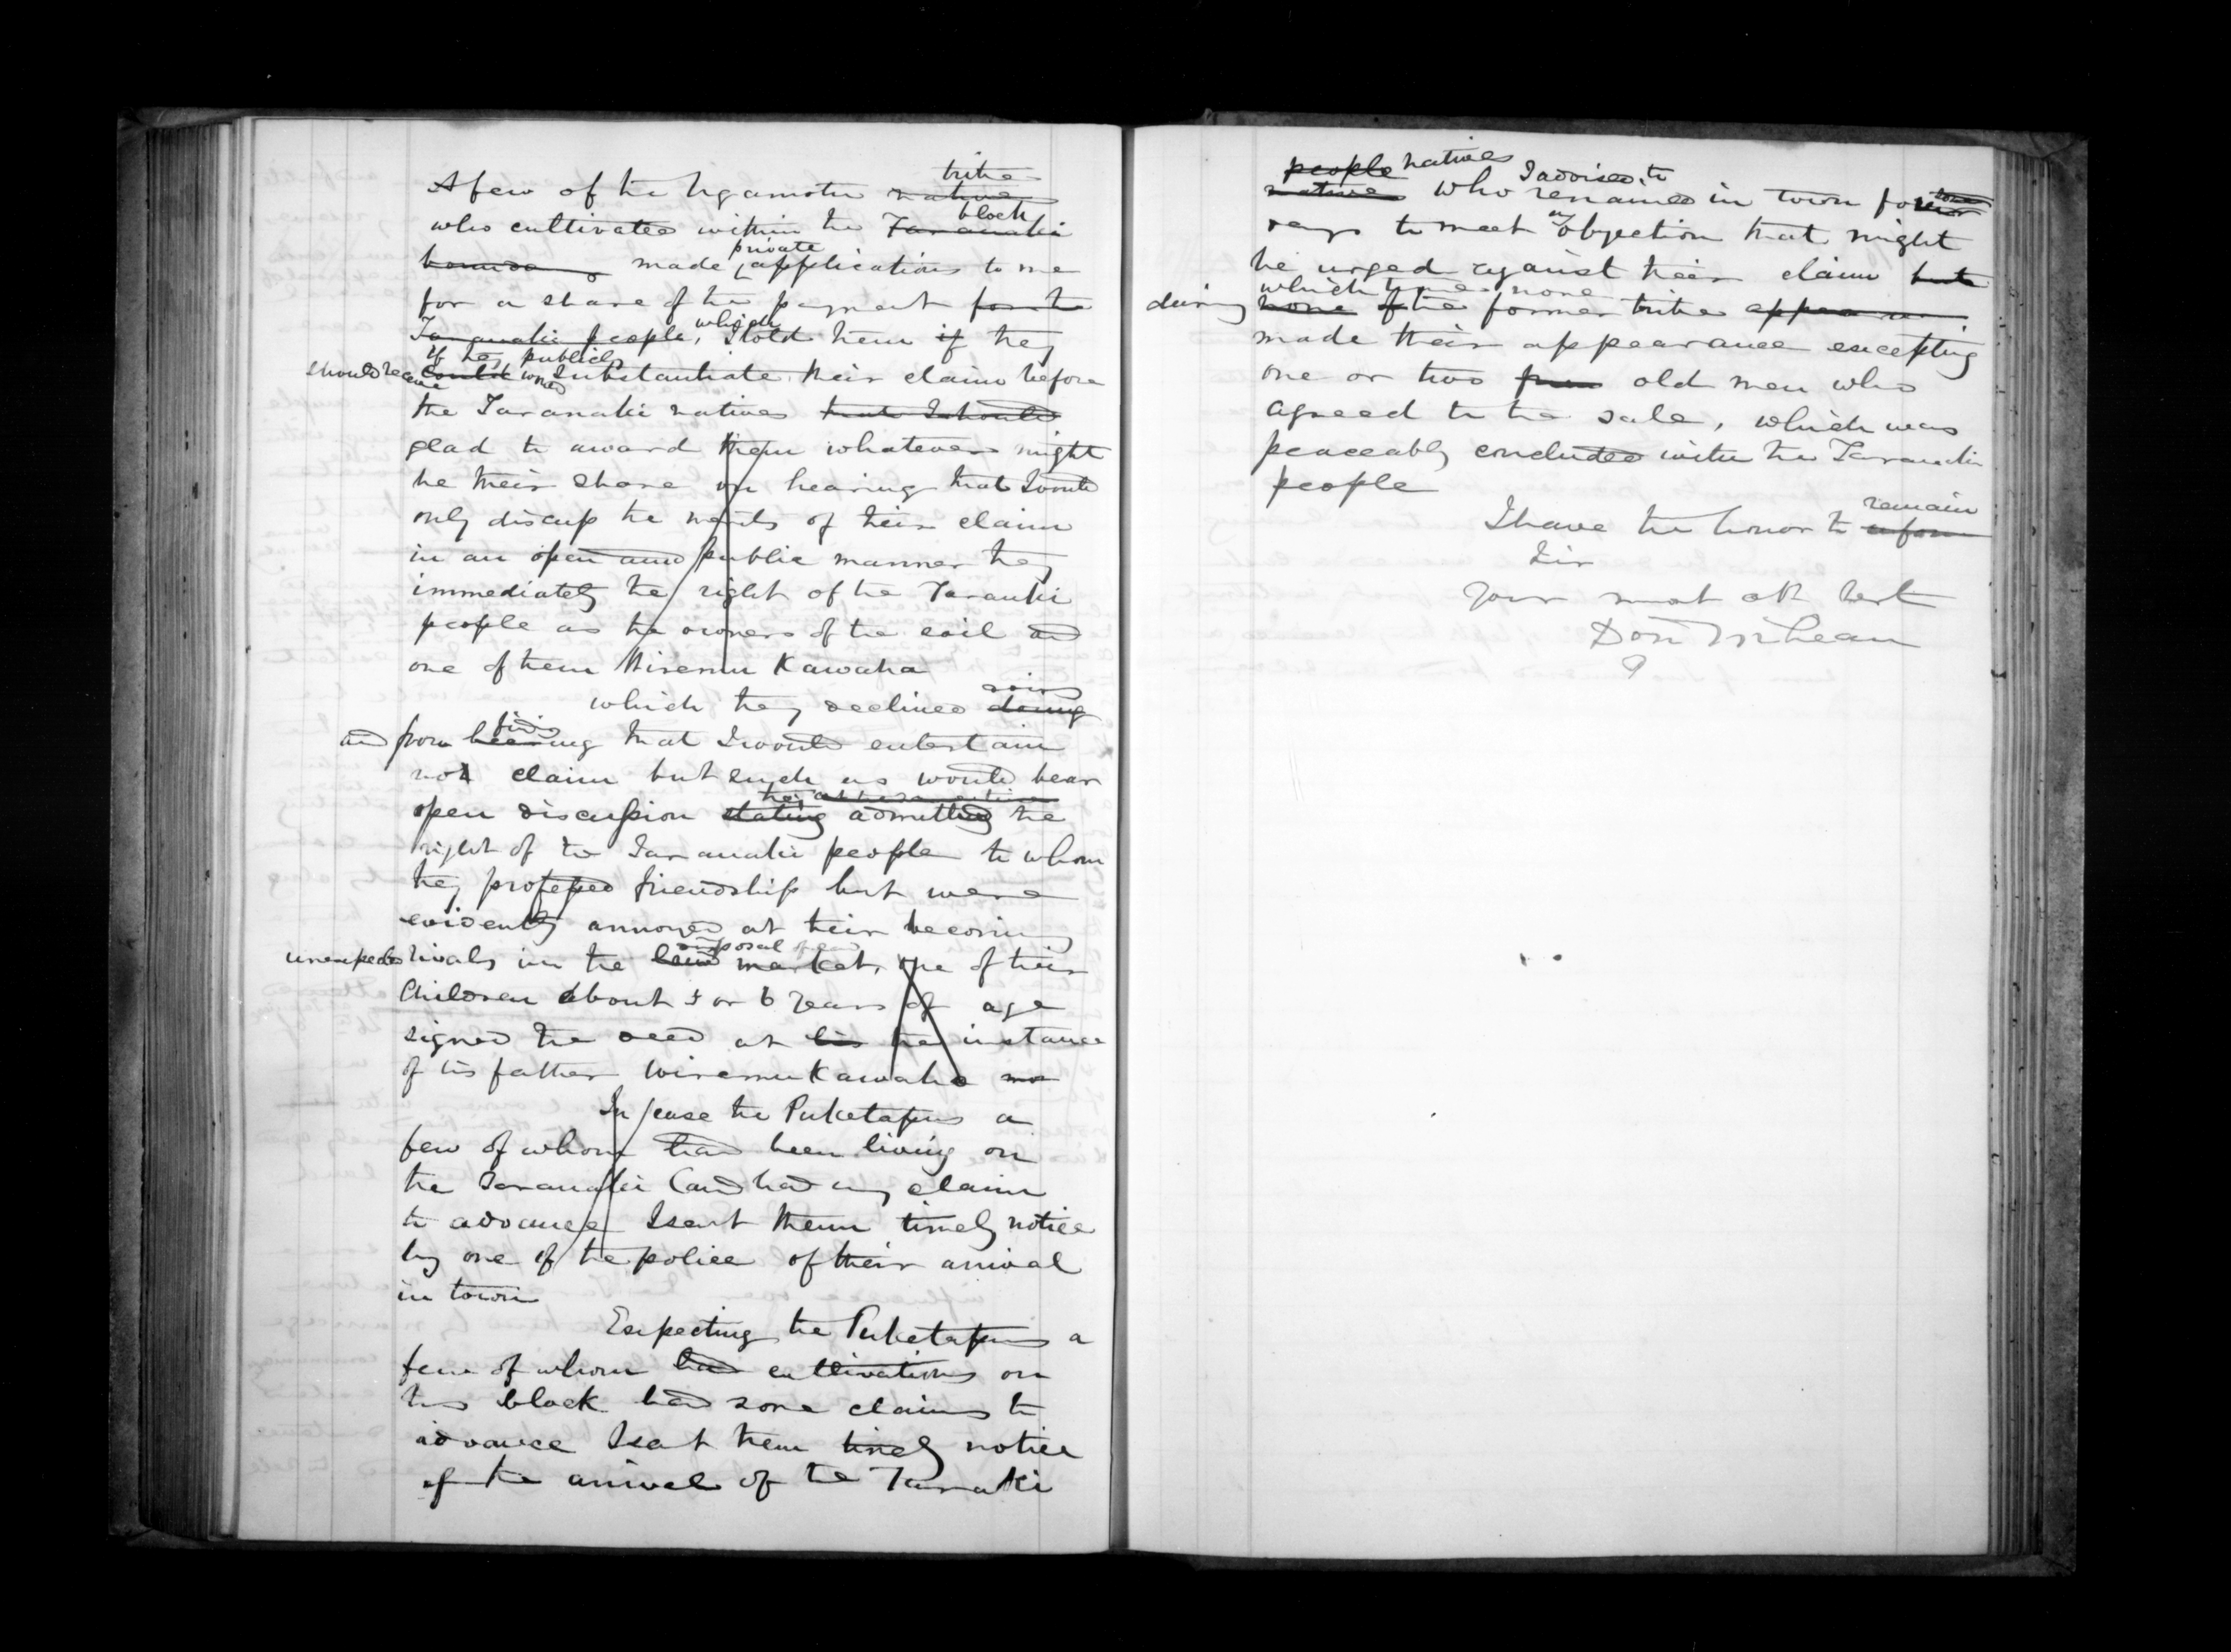 tribe
A few of the Ngamotu native
block
who cultivated within the Taranaki
private
made applications to me
for a share of the payment for the
which
Taranaki people, I told them if they
if they publicly
should receive could would substantiate their claim before
the Taranaki natives that I should
glad to award them whatever might
be their share on hearing that I would
only discuss the merits of their claim
in an open and public manner they
immediately the right of the Taranaki
people as the owners of the soil and
one of them Wiremu Kawaha
doing
which they declined doing
find
and from hearing that I would entertain
not claim but such as would bear
they
open discussion stating admitted the
right of the Taranaki people to whom
they professed friendship but were
evidently annoyed at their becoming
disposal of land
unexpected rivals in the land market, one of their
children about 5 or 6 years of age
signed the deed at his the instance
of his father Wiremu Kawaha
In case the Puketapus a
few of whom had been living on
the Taranaki land had any claim
to advance I sent them timely notice
by one of the police of their arrival
in town
Expecting the Puketapus a
few of whom had cultivations on
this block had some claims to
advance I sent them timely notice
of the arrival of the Taranaki
people natives I advised to
natives who remained in town for
some
days to meet any objection that might
be urged against their claim but
which time none
during none of the former tribe
made their appearance excepting
one or two old men who
agreed to the sale, which was
peaceably concluded with the Taranaki
people
remain
I have the honor to inform
Sir
Your most ob Servt
Don McLean